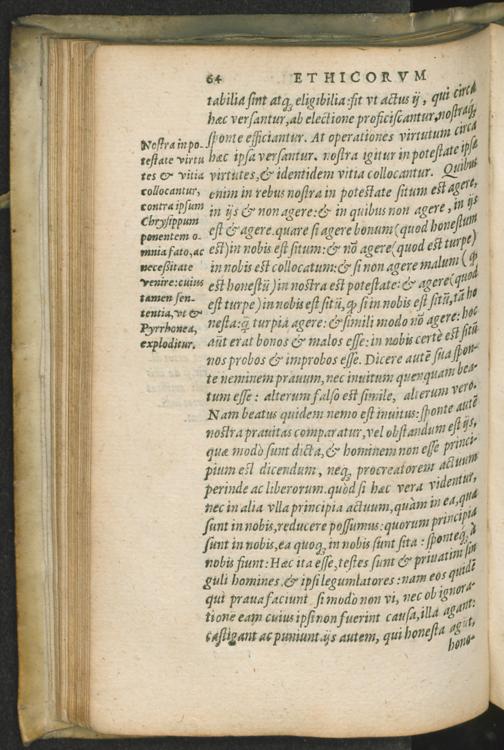 64 ETHICORVM
tabilia sint atq; eligibilia: fit vt actus ij, qui circa
hæc versantur, ab electione proficiscantur, nostraq́;
sponte efficiantur. At operationes virtutum circa
hæc ipsa versantur. nostra igitur in potestate ipsæ
virtutes, & identidem vitia collocantur. Quibus
enim in rebus nostra in potestate situm est agere,
in ijs & non agere: & in quibus non agere, in ijs
est & agere. quare si agere bonum (quod honestum
est) in nobis est situm: & nõ agere (quod est turpe)
in nobis est collocatum: & si non agere malum (qď
est honestũ) in nostra est potestate: & agere (quod
est turpe) in nobis est sitũ, qď si in nobis est sitũ, tã ho
nesta: q̃ turpia agere: & simili modo nõ agere: hoc
aũt erat bonos & malos esse: in nobis certè est sitũ
nos probos & improbos esse. Dicere autẽ sua spon-
te neminem prauum, nec inuitum quenquam bea-
tum esse: alterum falso est simile, alterum vero.
Nam beatus quidem nemo est inuitus: sponte autẽ
nostra prauitas comparatur, vel obstandum est ijs,
quæ modò sunt dicta, & hominem non esse princi-
pium est dicendum, neq; procreatorem actuum
perinde ac liberorum. quòd si hæc vera videntur,
nec in alia vlla principia actuum, quàm in ea, quæ
sunt in nobis, reducere possumus: quorum principia
sunt in nobis, ea quoq; in nobis sunt sita: sponteq́; à
nobis fiunt: Hæc ita esse, testes sunt & priuatim sin
guli homines & ipsi legumlatores: nam eos quidẽ
qui praua faciunt si modò non vi, nec ob ignora-
tionẽ eam cuius ipsi non fuerint causa, illa agant:
castigant ac puniunt. ijs autem, qui honesta agũt,
hono-
Nostra in po-
testate virtu
tes & vitia
collocantur,
contra ipsum
Chrysippum
ponentem o-
mnia fato, ac
necessitate
venire: cuius
tamen sen-
tentia, vt &
Pyrrhonea,
exploditur.